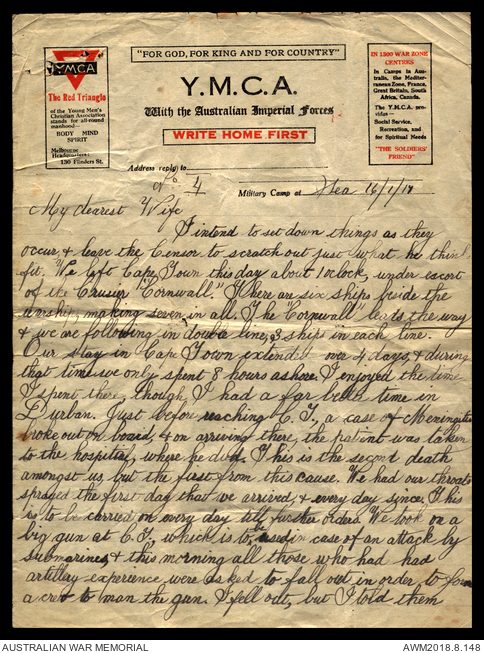 "FOR GOD, FOR KING AND FOR COUNTRY"
YMCA
The Red Triangle
of the Young Men's
Christian Association
stands for all-round
manhood—
BODY MIND
SPIRIT
Melbourne
Headquarters
130 Flinders St.
Y.M.C.A.
With the Australian Imperial Forces
WRITE HOME FIRST
IN 1500 WAR ZONE
CENTRES
In Camps in Aus-
tralia, the Mediter-
ranean Zone, France,
Great Britain, South
Africa, Canada.
The Y.M.C.A. pro-
vides—
Social Service,
Recreation, and
for Spiritual Needs
"THE SOLDIERS'
FRIEND"
Address reply to
No 4
Military Camp at Sea 16/1/17
My dearest Wife
I intend to set down things as they
occur, & leave the Censor to scratch out just what he think
fit. We left Cape Town this day about 1 oclock, under escort
of the Crusier "Cornwall." There are six ships beside the
warship, making seven in all. The "Cornwall" leads the way
& we are following in double line, 3 ships in each line.
Our stay in Cape Town extended over 4 days, & during
that time we only spent 8 hours ashore. I enjoyed the time
I spent there, though I had a far better time in
Durban. Just before reaching C.T., a case of Meningitis
broke out on board, & on arriving there, the patient was taken
to the hospital, where he died. This is the second death
amongst us, but the first from this cause. We had our throats
sprayed the first day that we arrived, & every day since. This
is to be carried on every day till further orders. We took on a
big gun at C.T., which is to be used in case of an attack by
submarines, & this morning all those who had had
artillery experience were asked to fall out in order to form
a crew to man the gun. I fell out, but I told them
AUSTRALIAN WAR MEMORIAL
AWM2018.8.148